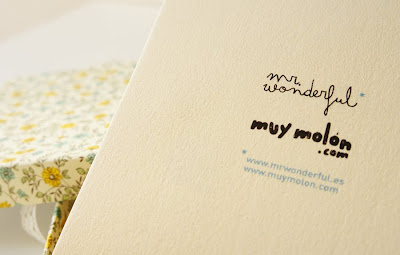 mr.
wonderful*
muy molón
.com
* www.mrwonderful.es
www.muymolon.com